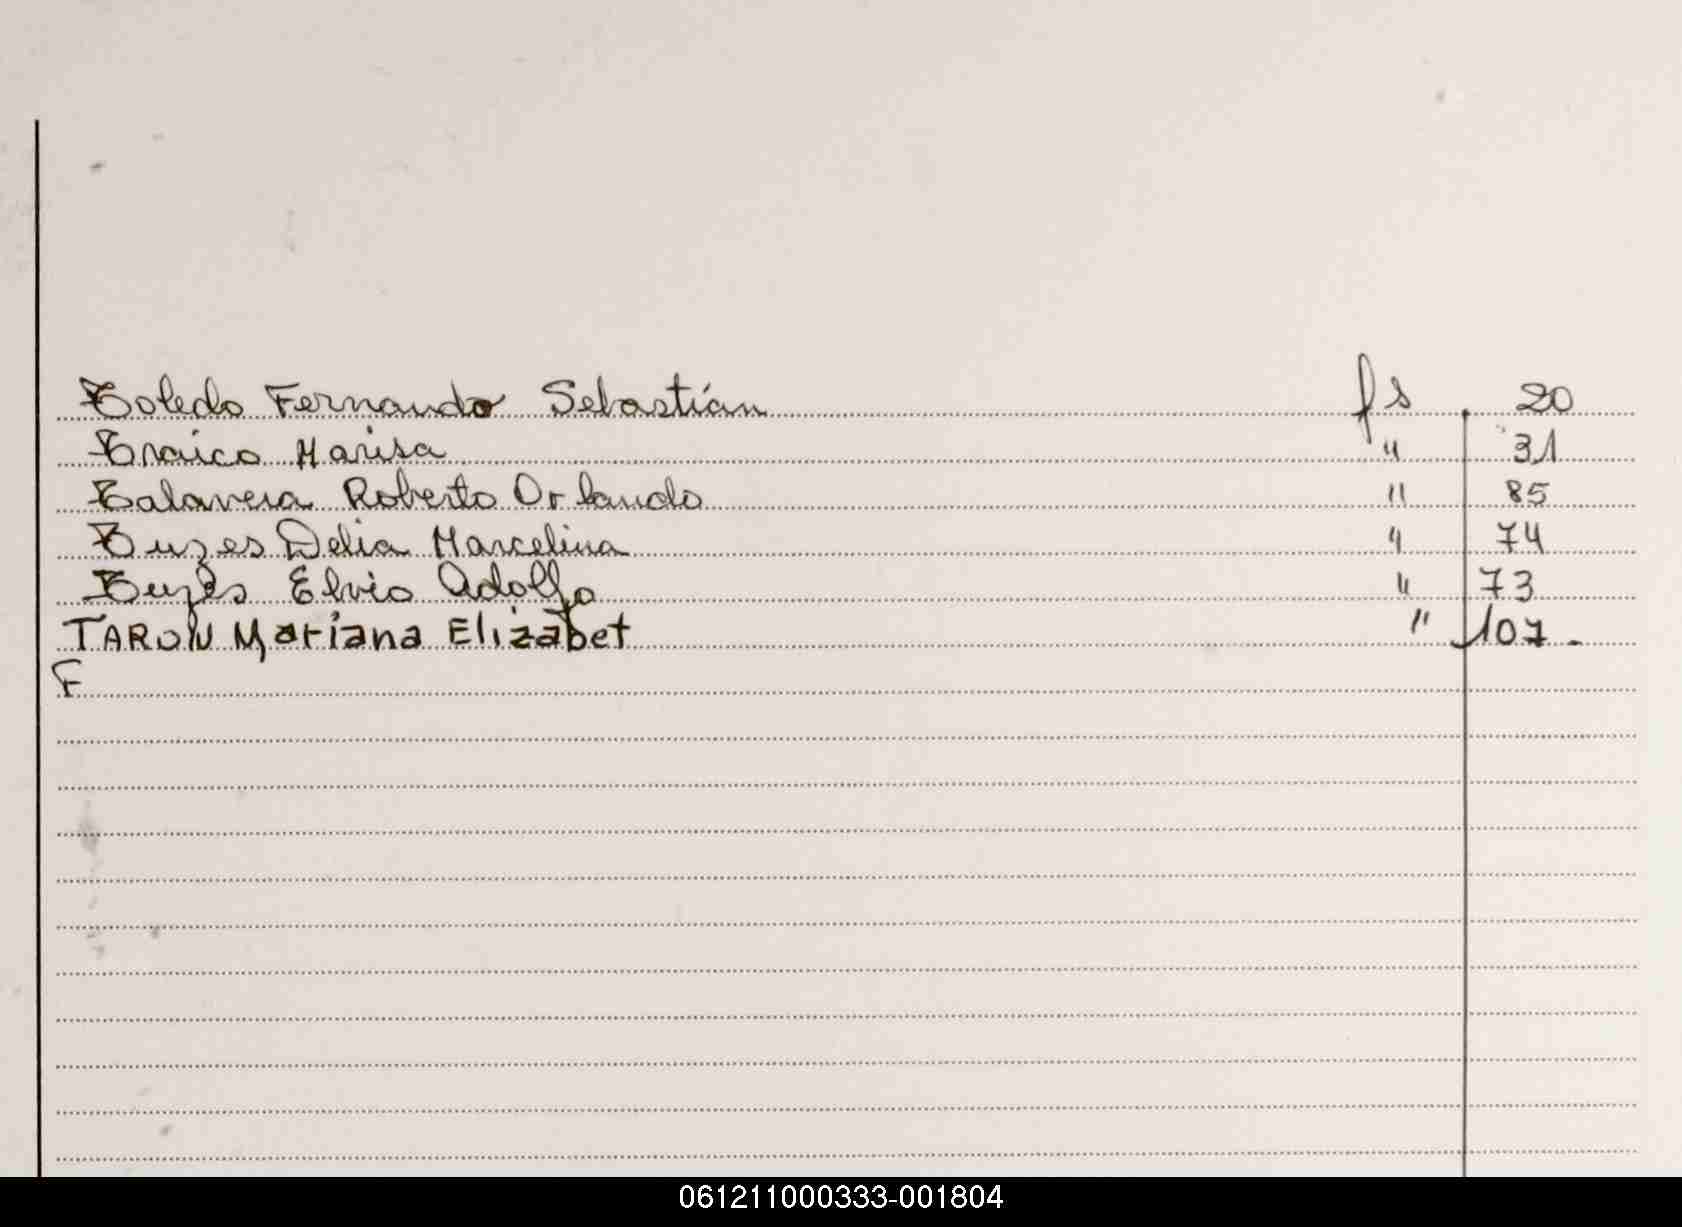 Toledo Fernando Sebastián fs 20
Traico Marisa " 31
Talavera Roberto Orlando " 85
Tuzes Delia Marcelina " 74
Tuzes Elvio Adolfo " 73
TARON Mariana Elizabet " 107.
F
061211000333-001804